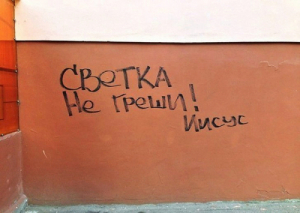 СВЕТКА
Не ГРЕШИ!
Иисус